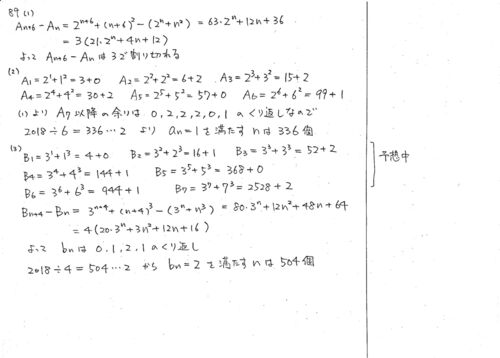 89 (1)
An+6 - An = 2^{n+6} + (n+6)^2 - (2^n + n^2) = 63・2^n + 12n + 36
= 3(21・2^n + 4n + 12)
よって An+6 - An は3で割り切れる
(2)
A1 = 2^1 + 1^2 = 3+0 A2 = 2^2 + 2^2 = 6+2 A3 = 2^3 + 3^2 = 15+2
A4 = 2^4 + 4^2 = 30+2 A5 = 2^5 + 5^2 = 57+0 A6 = 2^6 + 6^2 = 99+1
(1)より A7 以降の余りは 0, 2, 2, 2, 0, 1 のくり返しなので
2018÷6 = 336…2 より an=1を満たす nは 336個
(3)
B1 = 3^1 + 1^3 = 4+0 B2 = 3^2 + 2^3 = 16+1 B3 = 3^3 + 3^3 = 52+2
予想中
B4 = 3^4 + 4^3 = 144+1 B5 = 3^5 + 5^3 = 368+0
B6 = 3^6 + 6^3 = 944+1 B7 = 3^7 + 7^3 = 2528+2
Bn+4 - Bn = 3^{n+4} + (n+4)^3 - (3^n + n^3) = 80・3^n + 12n^2 + 48n + 64
= 4(20・3^n + 3n^2 + 12n + 16)
よって bnは 0, 1, 2, 1 のくり返し
2018÷4 = 504…2 から bn=2を満たす nは 504個